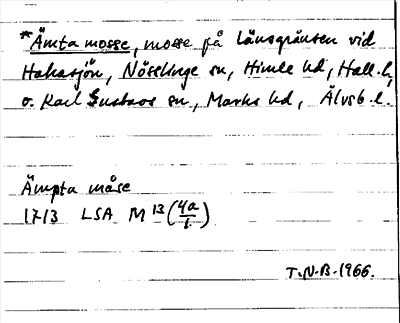 *Ämta mosse, mosse på länsgränsen vid
Hakasjön, Nösslinge sn, Himle hd, Hall. l,
o. Karl Gustavs sn, Marks hd, Älvsb. l.
Ämpta måse
1713 LSA M 13 (4a/1)
T.N.B. 1966.